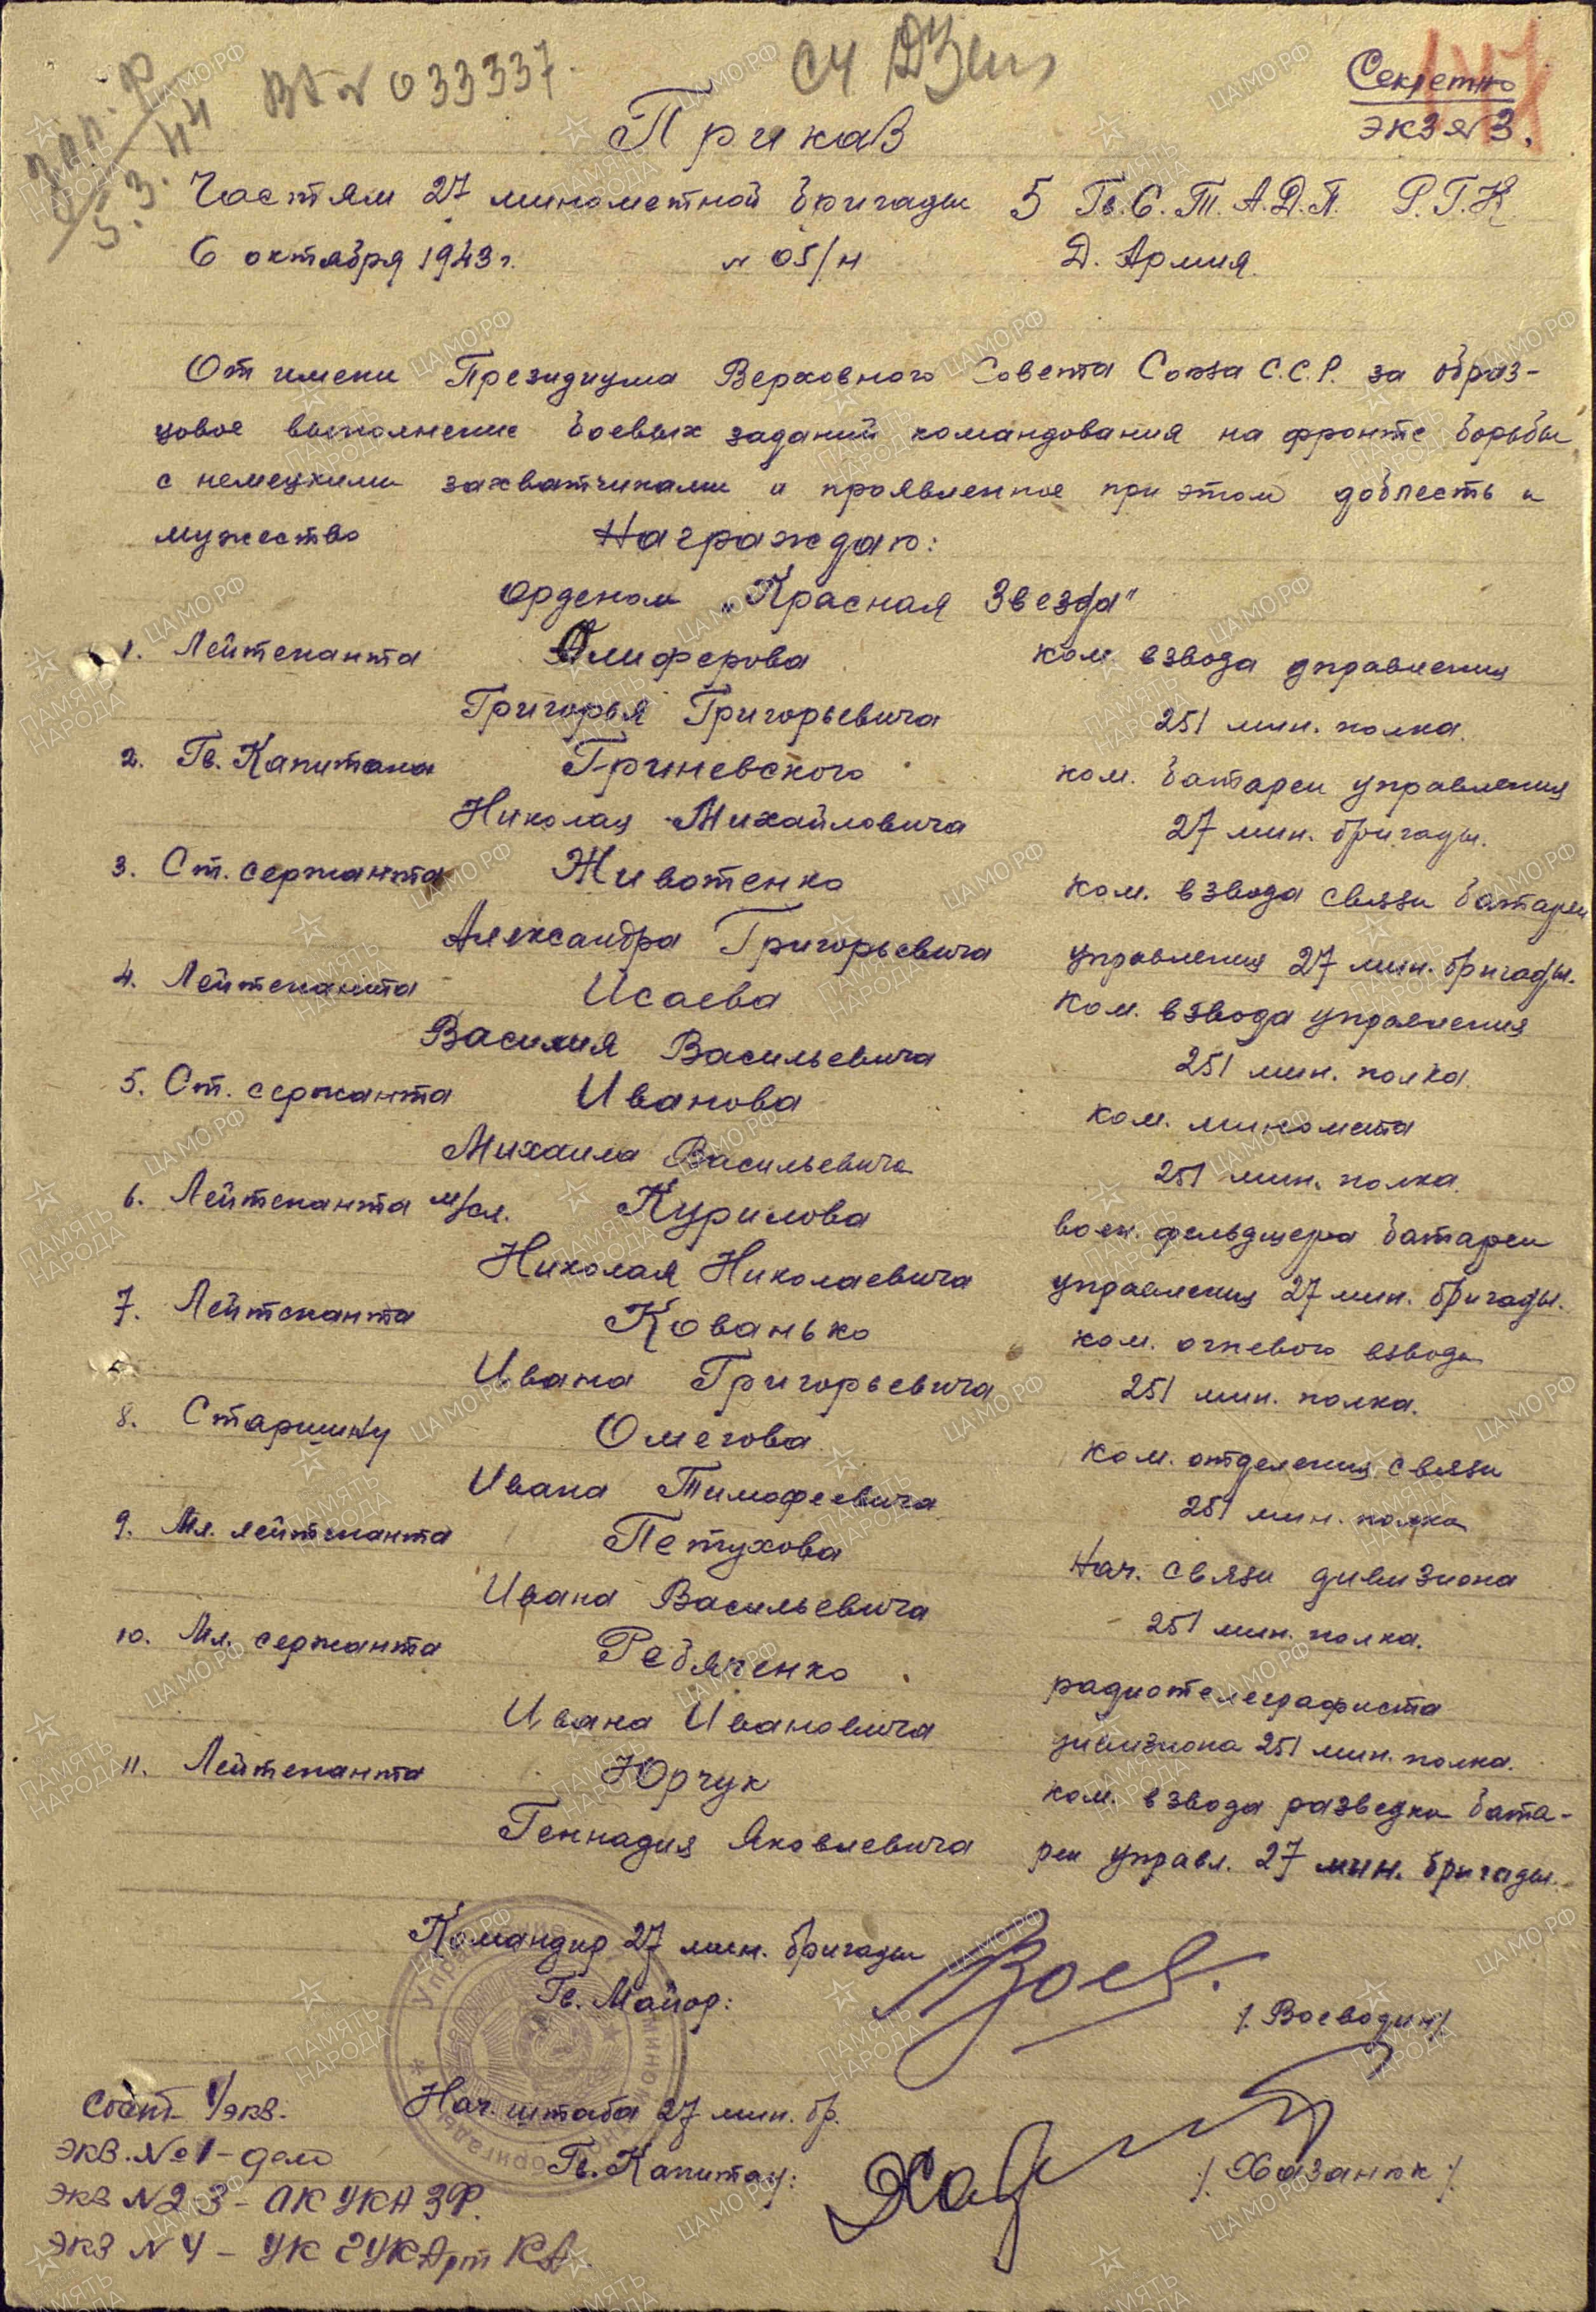 Вх № 033337
Секретно
экз № 3.
Приказ
Частям 27 минометной бригады 5 Гв. С. Т. А. Д. П. Р. Г. К
6 октября 1943 г. № 05/н Д. Армия.
От имени Президиума Верховного Совета Союза С.С.Р. за образ-
цовое выполнение боевых заданий командования на фронте борьбы
с немецкими захватчиками и проявленное при этом доблесть и
мужество Награждаю:
орденом „Красная Звезда"
1. Лейтенанта Олиферова ком. взвода управления
Григорья Григорьевича 251 мин. полка.
2. Гв. Капитана Гриневского ком. батареи управления
Николая Михайловича 27 мин. бригады.
3. Ст. сержанта Животенко ком. взвода связи батареи
Александра Григорьевича управления 27 мин. бригады.
4. Лейтенанта Исаева ком. взвода управления
Василия Васильевича 251 мин. полка.
5. Ст. сержанта Иванова ком. миномета
Михаила Васильевича 251 мин. полка.
6. Лейтенанта м/сл. Курилова воен. фельдшера батареи
Николая Николаевича управления 27 мин. бригады.
7. Лейтенанта Кованько ком. огневого взвода
Ивана Григорьевича 251 мин. полка.
8. Старшину Омегова ком. отделения связи
Ивана Тимофеевича 251 мин. полка
9. Мл. лейтенанта Петухова Нач. связи дивизиона
Ивана Васильевича 251 мин. полка.
10. Мл. сержанта Ребяченко радиотелеграфиста
Ивана Ивановича дивизиона 251 мин. полка.
11. Лейтенанта Юрчук ком. взвода разведки бата-
Геннадия Яковлевича реи управл. 27 мин. бригады.
Командир 27 мин. бригады
Гв. Майор: /. Воеводин/
Нач. штаба 27 мин. бр.
Гв. Капитан: /. Хазанюк /.
экз. №1 - дело
экз № 2, 3 - ОК УКА ЗФ.
экз № 4 - УК ГУКАрт КА.